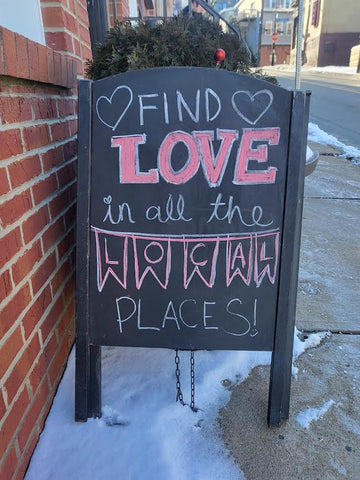 FIND
LOVE
in all the
LOCAL
PLACES!